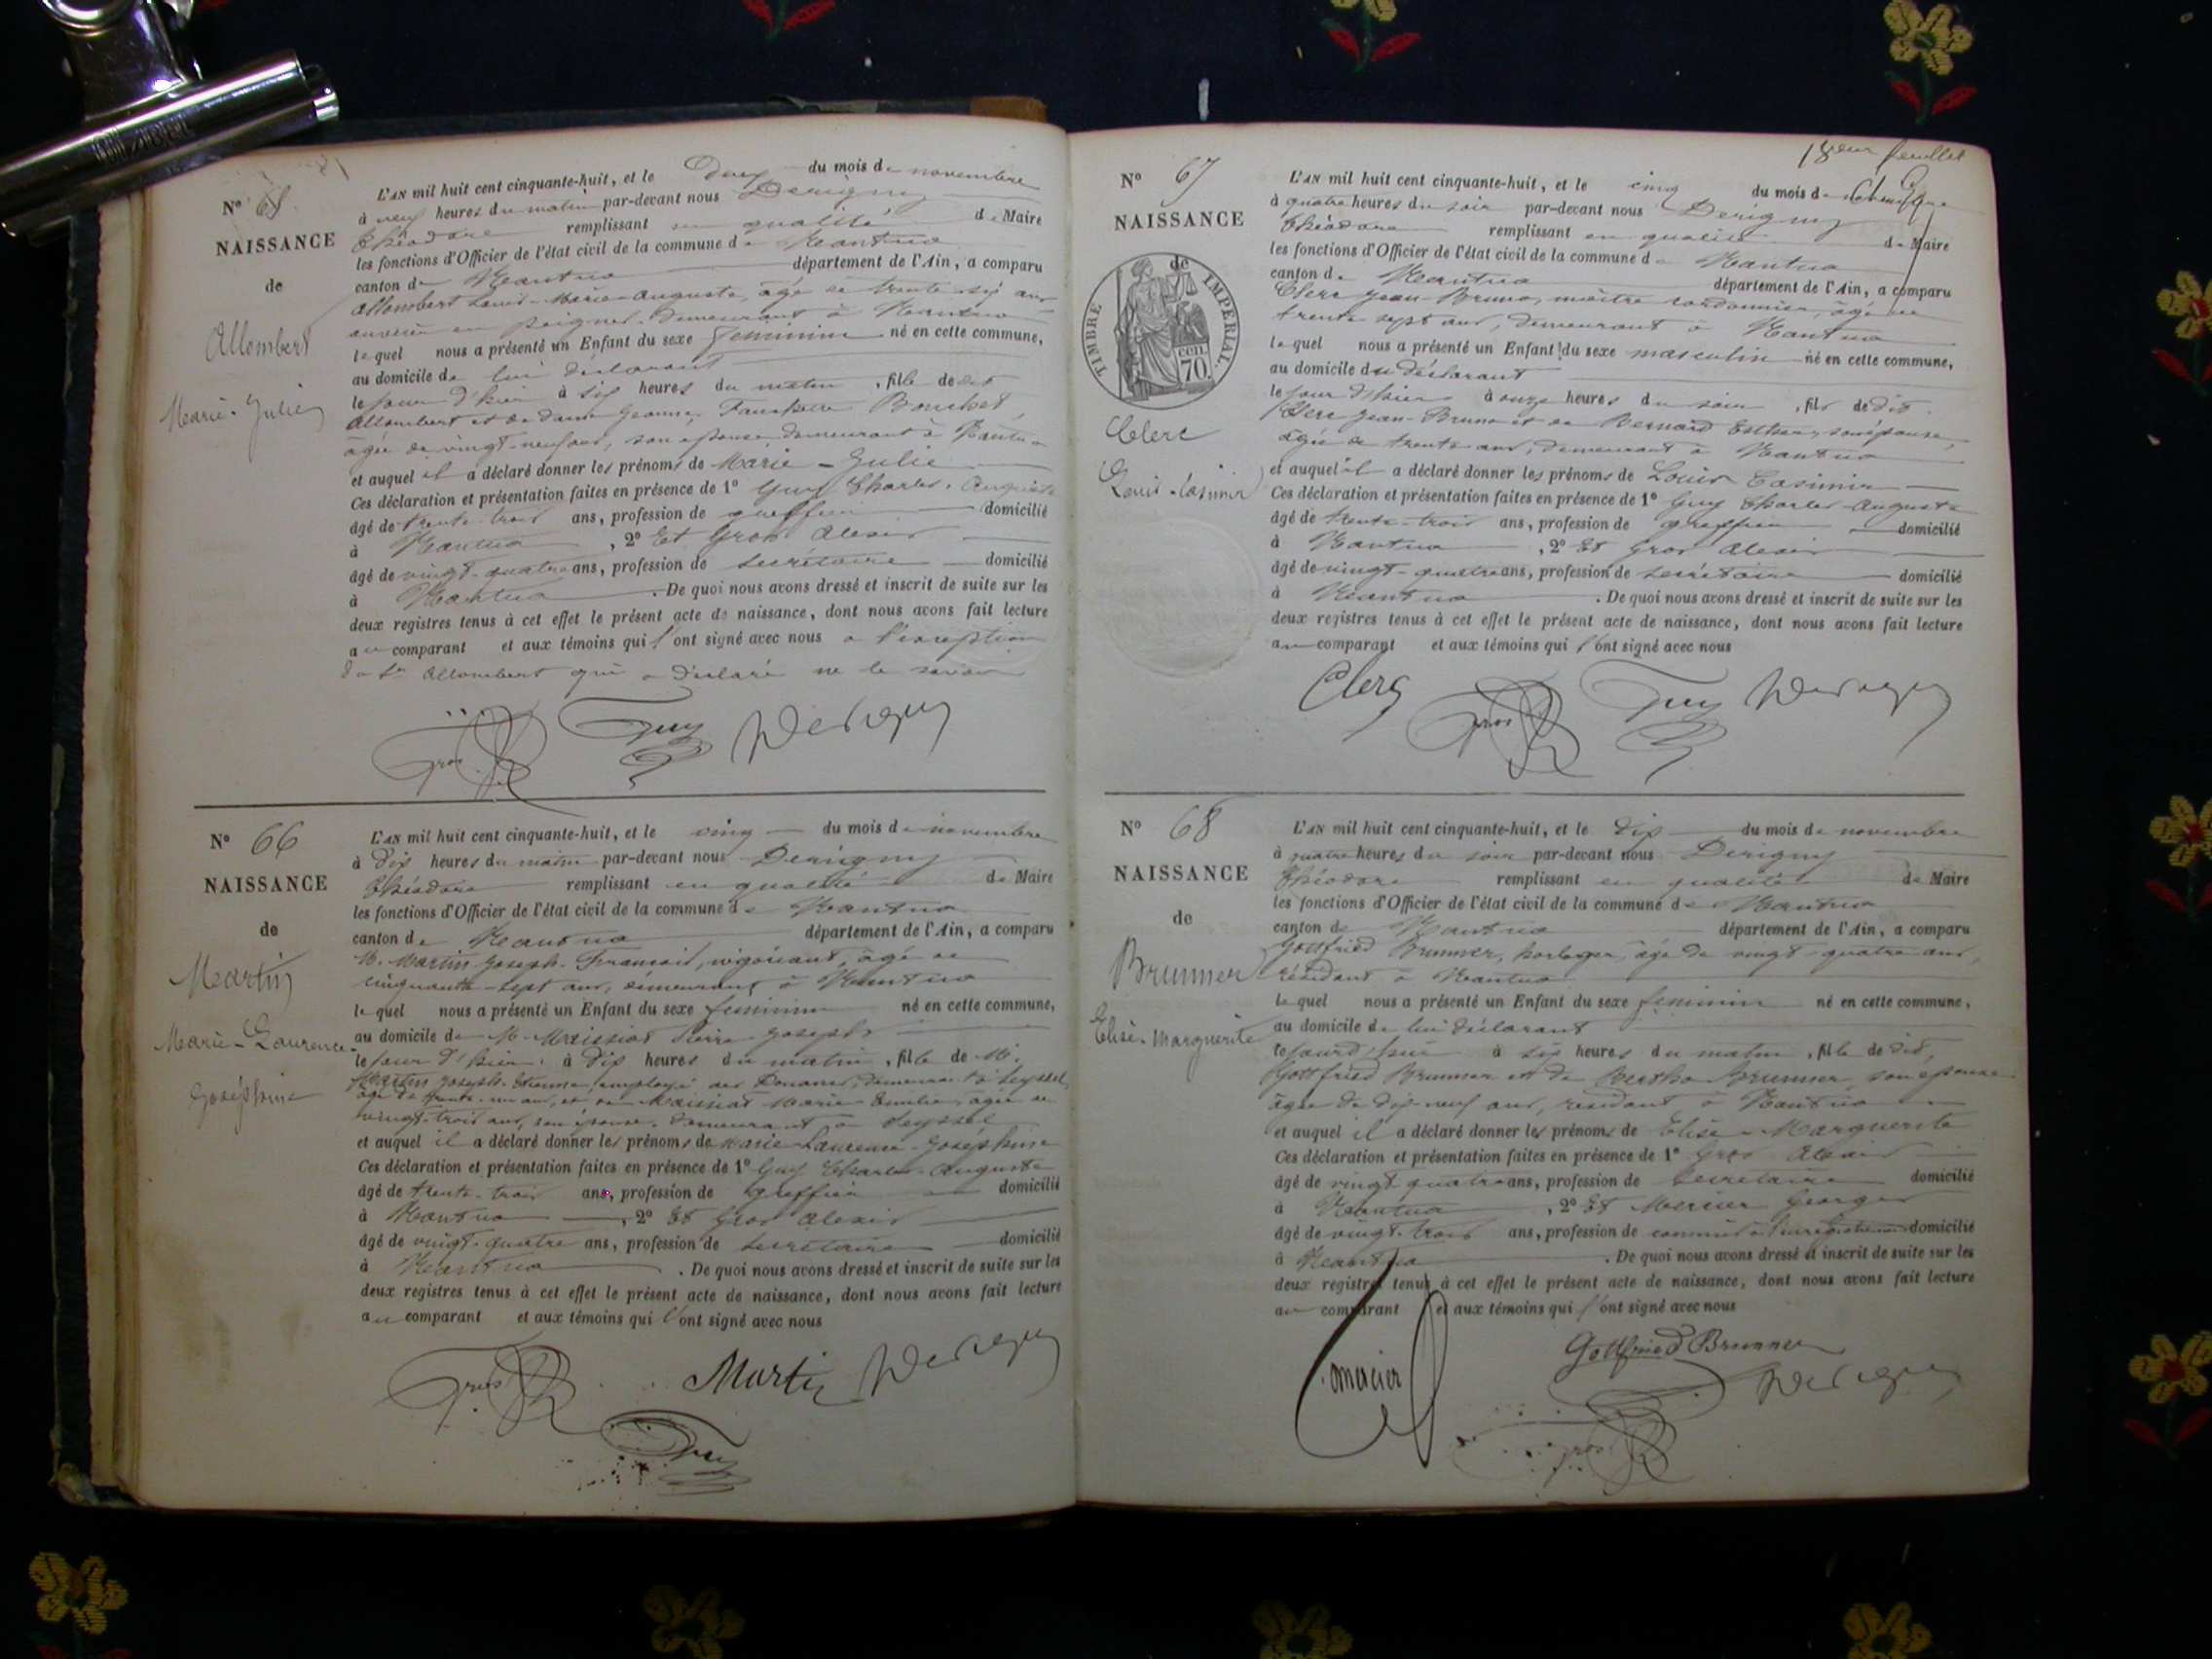 N° 65
NAISSANCE
de
Allombert
Marie-Julie
L'AN mil huit cent cinquante-huit, et le Deux du mois de novembre
à neuf heures du matin par-devant nous Derigny
Théodore remplissant en qualité de Maire
les fonctions d'Officier de l'état civil de la commune de Nantua
canton de Nantua département de l'Ain, a comparu
Allombert Louis-Marie-Auguste, âgé de trente six ans
ouvrier en peignes demeurant à Nantua
lequel nous a présenté un Enfant du sexe féminin né en cette commune,
au domicile de lui déclarant
le jour d'hier à six heures du matin, fille de dit
Allombert et de dame Bouchet,
âgée de vingt-neuf ans, son épouse demeurant à Nantua
et auquel il a déclaré donner les prénoms de Marie-Julie
Ces déclaration et présentation faites en présence de 1° Guy Charles-Auguste
âgé de trente-trois ans, profession de greffier domicilié
à Nantua, 2° Et Gros Alexis
âgé de vingt-quatre ans, profession de secrétaire domicilié
à Nantua. De quoi nous avons dressé et inscrit de suite sur les
deux registres tenus à cet effet le présent acte de naissance, dont nous avons fait lecture
au comparant et aux témoins qui l'ont signé avec nous à l'exception
d Allombert qui a déclaré ne le savoir
Gros Guy Derigny
N° 66
NAISSANCE
de
Martin
Marie-Laurence-
Joséphine
L'AN mil huit cent cinquante-huit, et le cinq du mois de novembre
à Dix heures du matin par-devant nous Derigny
Théodore remplissant en qualité de Maire
les fonctions d'Officier de l'état civil de la commune de Nantua
canton de Nantua département de l'Ain, a comparu
M. Martin Joseph-François, négociant, âgé de
cinquante-sept ans, demeurant à Nantua
lequel nous a présenté un Enfant du sexe féminin né en cette commune,
au domicile de M. Maissiat Pierre Joseph
le jour d'hier à Dix heures du matin, fille de M.
Martin Joseph-Etienne employé des Douanes, demeurant à Seyssel
âgé de trente-un ans, et de Maissiat Marie-Emilie, âgée de
vingt-trois ans, son épouse, demeurant à Seyssel
et auquel il a déclaré donner les prénoms de Marie-Laurence-Joséphine
Ces déclaration et présentation faites en présence de 1° Guy Charles-Auguste
âgé de trente-trois ans, profession de greffier domicilié
à Nantua, 2° Et Gros Alexis
âgé de vingt-quatre ans, profession de secrétaire domicilié
à Nantua. De quoi nous avons dressé et inscrit de suite sur les
deux registres tenus à cet effet le présent acte de naissance, dont nous avons fait lecture
au comparant et aux témoins qui l'ont signé avec nous
Gros Martin Derigny
Guy
feuillet
N° 67
NAISSANCE
de
TIMBRE IMPERIAL.
70. cen.
Clerc
Louis-Casimir
L'AN mil huit cent cinquante-huit, et le cinq du mois de novembre
à quatre heures du soir par-devant nous Derigny
Théodore remplissant en qualité de Maire
les fonctions d'Officier de l'état civil de la commune de Nantua
canton de Nantua département de l'Ain, a comparu
Clerc Jean-Bruno, maître cordonnier, âgé de
trente sept ans, demeurant à Nantua
lequel nous a présenté un Enfant du sexe masculin né en cette commune,
au domicile du déclarant
le jour d'hier à onze heures du soir, fils de dit
Clerc Jean-Bruno et de Bernard Esther, son épouse,
âgée de trente ans, demeurant à Nantua
et auquel il a déclaré donner les prénoms de Louis Casimir
Ces déclaration et présentation faites en présence de 1° Guy Charles-Auguste
âgé de trente-trois ans, profession de greffier domicilié
à Nantua, 2° Et Gros Alexis
âgé de vingt-quatre ans, profession de secrétaire domicilié
à Nantua. De quoi nous avons dressé et inscrit de suite sur les
deux registres tenus à cet effet le présent acte de naissance, dont nous avons fait lecture
au comparant et aux témoins qui l'ont signé avec nous
Clerc Gros Guy Derigny
N° 68
NAISSANCE
de
Brunner
Elise-Marguerite
L'AN mil huit cent cinquante-huit, et le dix du mois de novembre
à quatre heures du soir par-devant nous Derigny
Théodore remplissant en qualité de Maire
les fonctions d'Officier de l'état civil de la commune de Nantua
canton de Nantua département de l'Ain, a comparu
Gottfried Brunner, horloger, âgé de vingt-quatre ans,
résidant à Nantua
lequel nous a présenté un Enfant du sexe féminin né en cette commune,
au domicile de lui déclarant
le jourd'hui à six heures du matin, fille de dit
Gottfried Brunner et de Bertha Brunner, son épouse
âgée de dix-neuf ans, résidant à Nantua
et auquel il a déclaré donner les prénoms de Elise-Marguerite
Ces déclaration et présentation faites en présence de 1° Gros Alexis
âgé de vingt quatre ans, profession de secrétaire domicilié
à Nantua, 2° Et Mercier Georges
âgé de vingt-trois ans, profession de commis à l'enregistrement domicilié
à Nantua. De quoi nous avons dressé et inscrit de suite sur les
deux registres tenus à cet effet le présent acte de naissance, dont nous avons fait lecture
au comparant et aux témoins qui l'ont signé avec nous
Gottfried Brunner
Gmercier Derigny
Gros